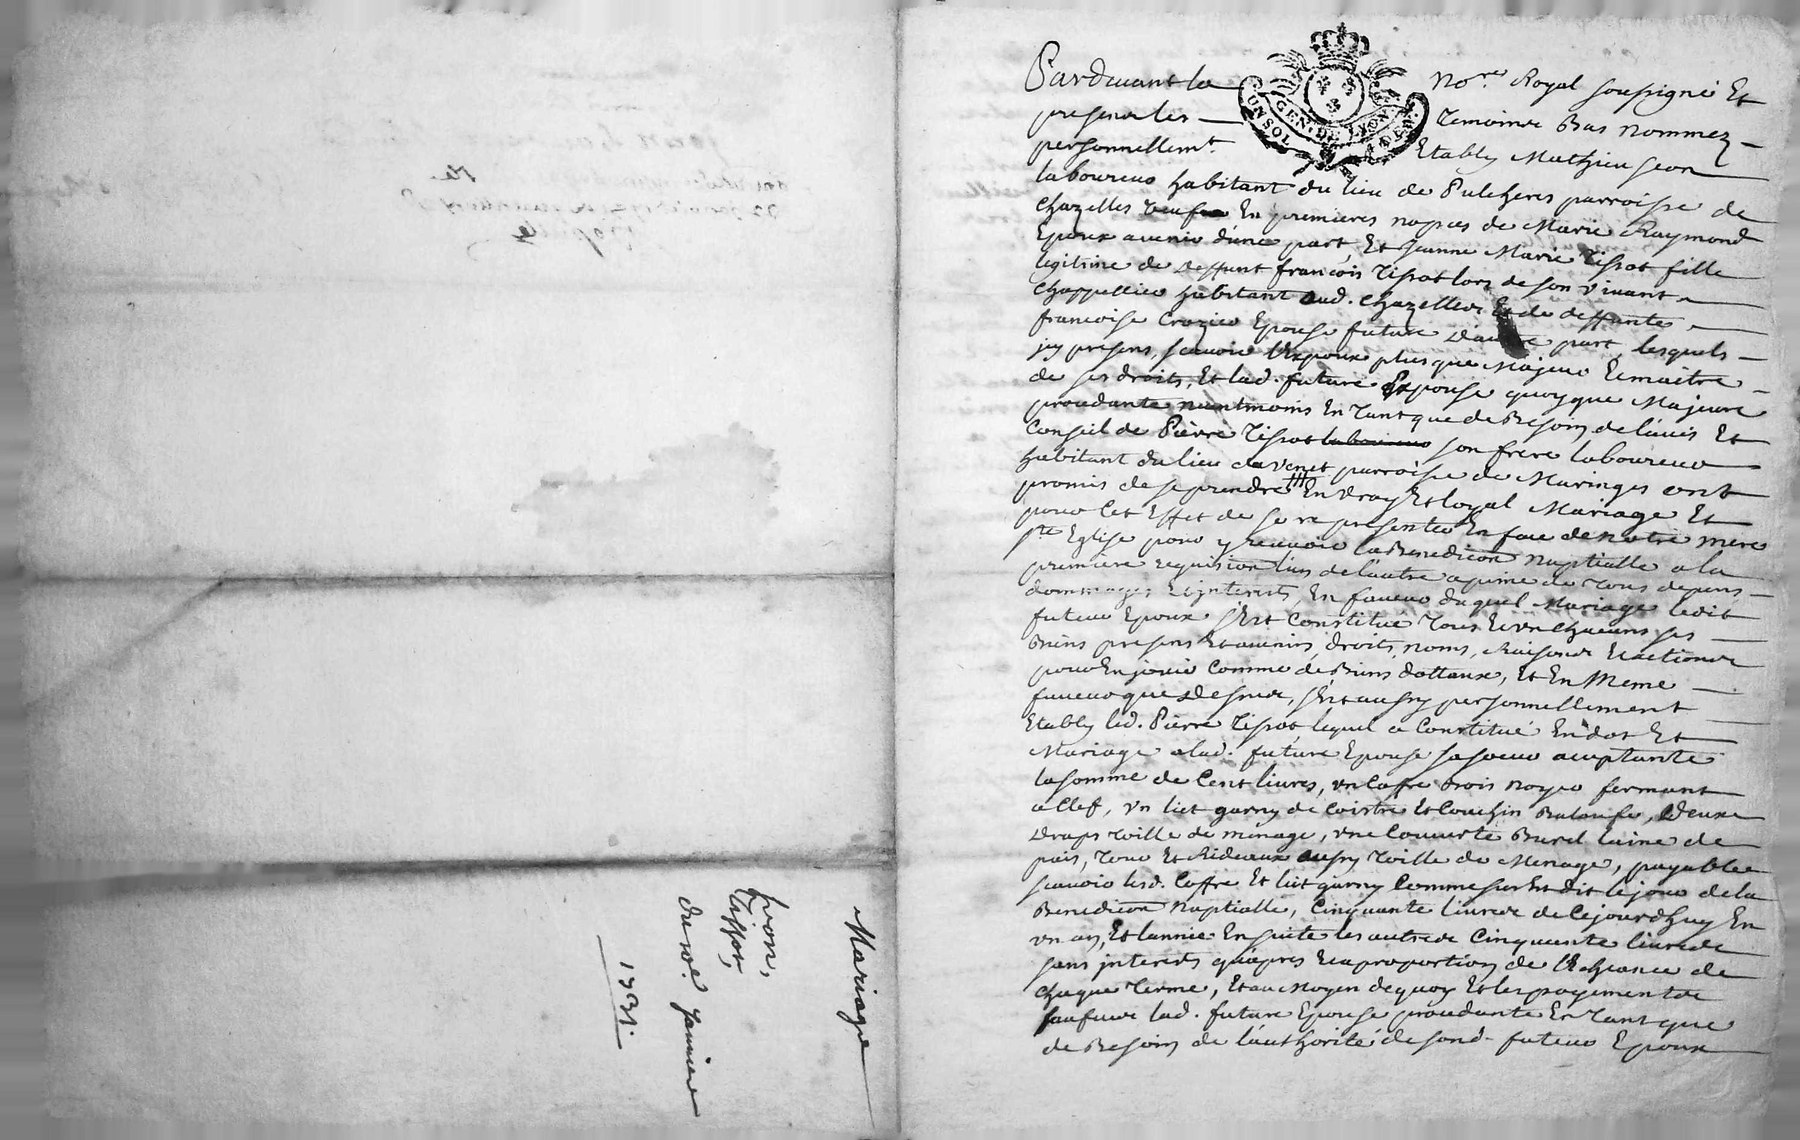 Mariage
Jvon,
Tissot,
Du 20e. Janvier
1731.
Pardevant le No.re Royal soussigné Et
presence les Temoins Bas nommez
personnellemt. Etably Mathieu Jvon
laboureur habitant du lieu de Pulcheres parroisse de
Chazelles veuf En premieres nopces de Marie Raymond
Epoux avenir d'une part, Et Jeanne Marie Tissot fille
legitime de deffunt francois Tissot lors de son vivant
Chappellier habitant aud. Chazelles Et de deffunte
francoise Crozier Epouse future d'autre part, lesquels
jcy presens, scavoir l'Epoux plus que Majeur Et maitre
de ses droits, Et lad. future Epouse quoyque Majeure
procedante neantmoins En Tant que de Besoin de l'avis Et
Conseil de Pierre Tissot laboureur son frere laboureur
habitant du lieu de parroisse de Maringes ont
promis de se prendre En vray Et loyal Mariage Et
pour Cet Effet de se representer En face de notre mere
ste Eglise pour y recevoir la Benediction Nuptialle a la
premiere requisition l'un de l'autre a peine de Tous depens
dommages Et interests, En faveur duquel Mariage ledit
futeur Epoux s'Est Constitué Tous Et un Chacuns ses
Biens presens Et avenirs, droits, noms, Raisons Et actions
pour En jouir Comme de Biens dottaux, Et En Meme
faveur que dessus, s'Est aussy personnellement
Etably led. Pierre Tissot lequel a Constitué En dot Et
Mariage a lad. future Epouse sa soeur acceptante
la somme de Cent livres, un Coffre bois noyer fermant
a Clef, un lict garny de Coistre Et Couchin Baloufe, Deux
draps Toille de ménage, une Couverte Burel laine de
païs, Tour Et Rideaux aussy Toille de Menage, payable
scavoir lesd. Coffre Et lict garny Comme sus Est dit le jour de la
Benediction Nuptialle, Cinquante livres de Cejourdhuy En
un an, Et l'année En suite les autres Cinquante livres
sans interests qu'apres Et a proportion de l'Echeance de
Chaque Terme, Et au Moyen de quoy Et les payements
sus faits lad. future Epouse procedante En Tant que
de Besoin de l'authorité de sond. futeur Epoux
GEN. DE LYON
UN SOL